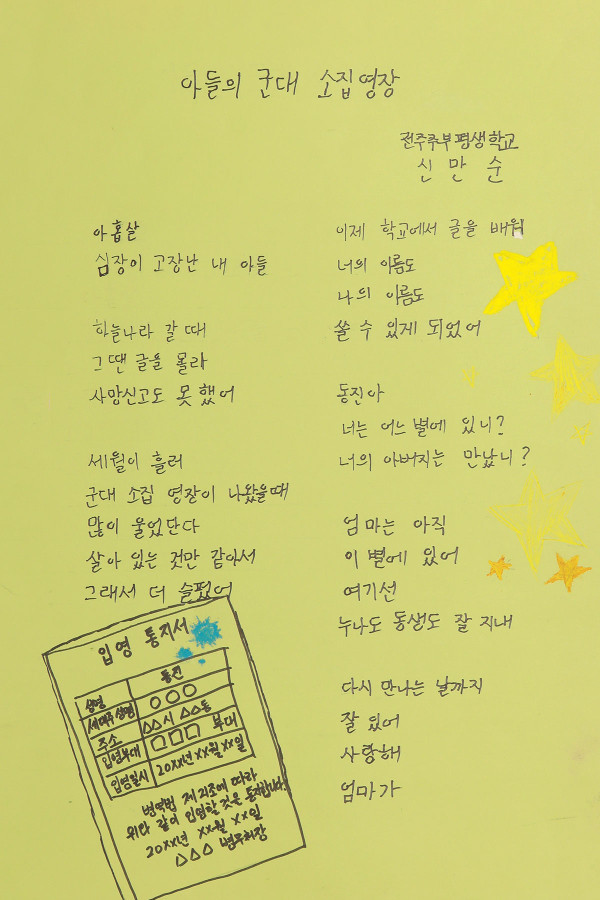 아들의 군대 소집영장
전주주부평생학교
신만순
아홉살
심장이 고장난 내 아들
하늘나라 갈 때
그땐 글을 몰라
사망신고도 못했어
세월이 흘러
군대 소집 영장이 나왔을때
많이 울었단다
살아 있는 것만 같아서
그래서 더 슬펐어
이제 학교에서 글을 배워
너의 이름도
나의 이름도
쓸 수 있게 되었어
동진아
너는 어느 별에 있니?
너의 아버지는 만났니?
엄마는 아직
이 별에 있어
여기선
누나도 동생도 잘 지내
다시 만나는 날까지
잘 있어
사랑해
엄마가
입영 통지서
성명 동진
세대주성명 ○○○
주소 △△시 △△동
입영부대 □□□ 부대
입영일시 20××년 ××월 ××일
병역법 제 조에 따라
위와 같이 입영할것을 통지합니다.
20××년 ××월 ××일
△△△ 병무청장